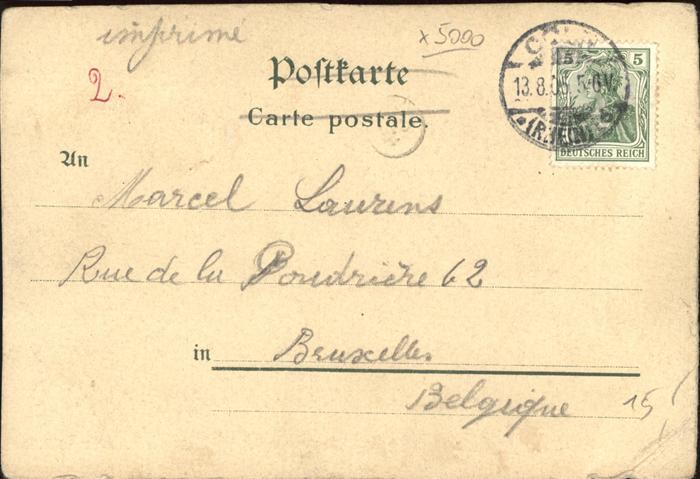 imprimé
x 5000
2.
Postkarte
Carte postale.
13.8.05. 5-6V.
(RHEIN)
5
DEUTSCHES REICH
An
Marcel Laurens
Rue de la Poudrière 62
in Bruxelles
Belgique
15